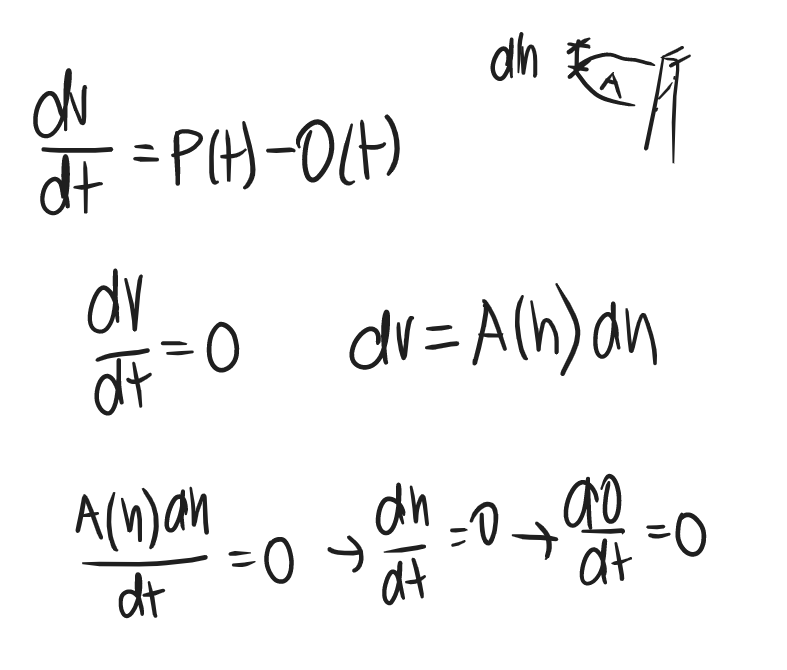 dh
A
dv/dt = P(t) - O(t)
dv/dt = 0    dv = A(h) dh
A(h) dh/dt = 0 → dh/dt = 0 → dO/dt = 0